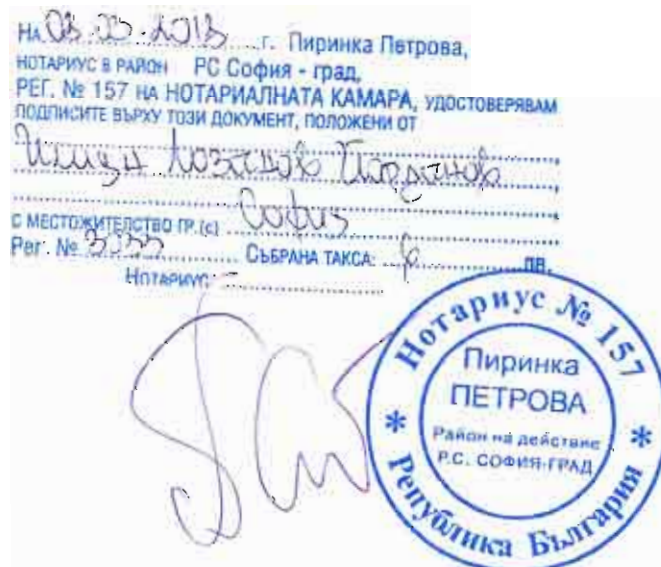 На 08.03.2013 г. Пиринка Петрова,
НОТАРИУС В РАЙОН РС София - град,
РЕГ. № 157 НА НОТАРИАЛНАТА КАМАРА, УДОСТОВЕРЯВАМ
ПОДПИСИТЕ ВЪРХУ ТОЗИ ДОКУМЕНТ, ПОЛОЖЕНИ ОТ
Йорданов
С МЕСТОЖИТЕЛСТВО ГР.(с) София
Рег. № СЪБРАНА ТАКСА: 6 ЛВ.
НОТАРИУС:
Нотариус № 157
Пиринка
ПЕТРОВА
Район на действие
Р.С. СОФИЯ-ГРАД
* Република България *